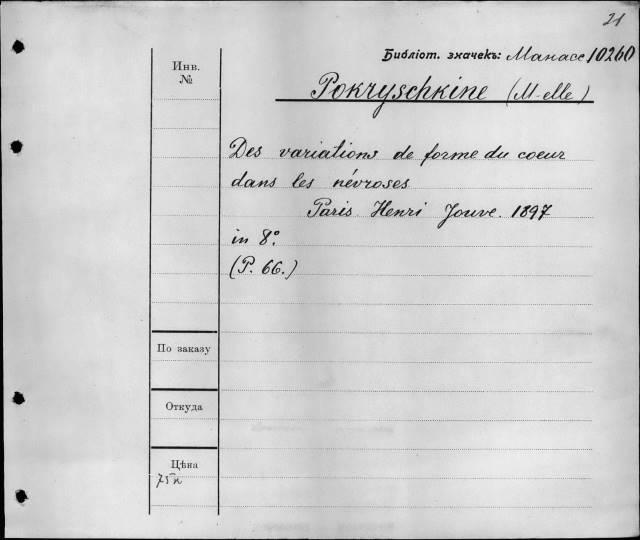 21
Библіот. значекъ: Манасс 10260
Инв.
№
Pokryschkine (M-elle)
Des variations de forme du coeur
dans les névroses
Paris Henri Jouve. 1897
in 8°.
(P. 66.)
По заказу
Откуда
Цѣна
75к